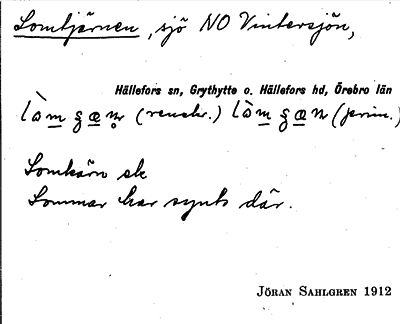 Lomtjärnen, sjö NO Vintersjön,
Hällefors sn, Grythytte o. Hällefors hd, Örebro län
Lomkärn sk
Lommar har synts där.
JÖRAN SAHLGREN 1912